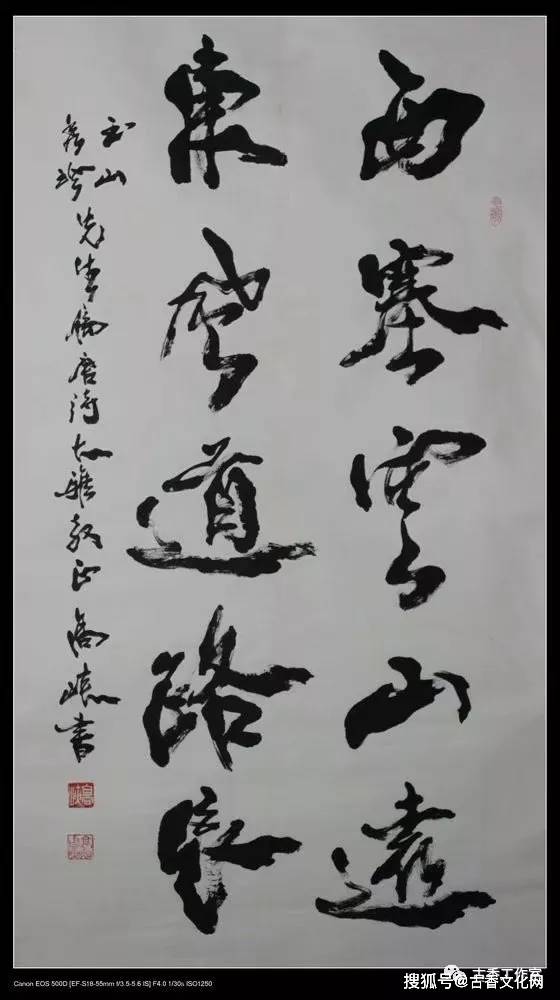 西塞雲山遠
東風道路長
玉山
先生 唐詩 大雅教正 高 書
Canon EOS 500D [EF-S18-55mm f/3.5-5.6 IS] F4.0 1/30s ISO1250
古香工作室
搜狐号@古香文化网